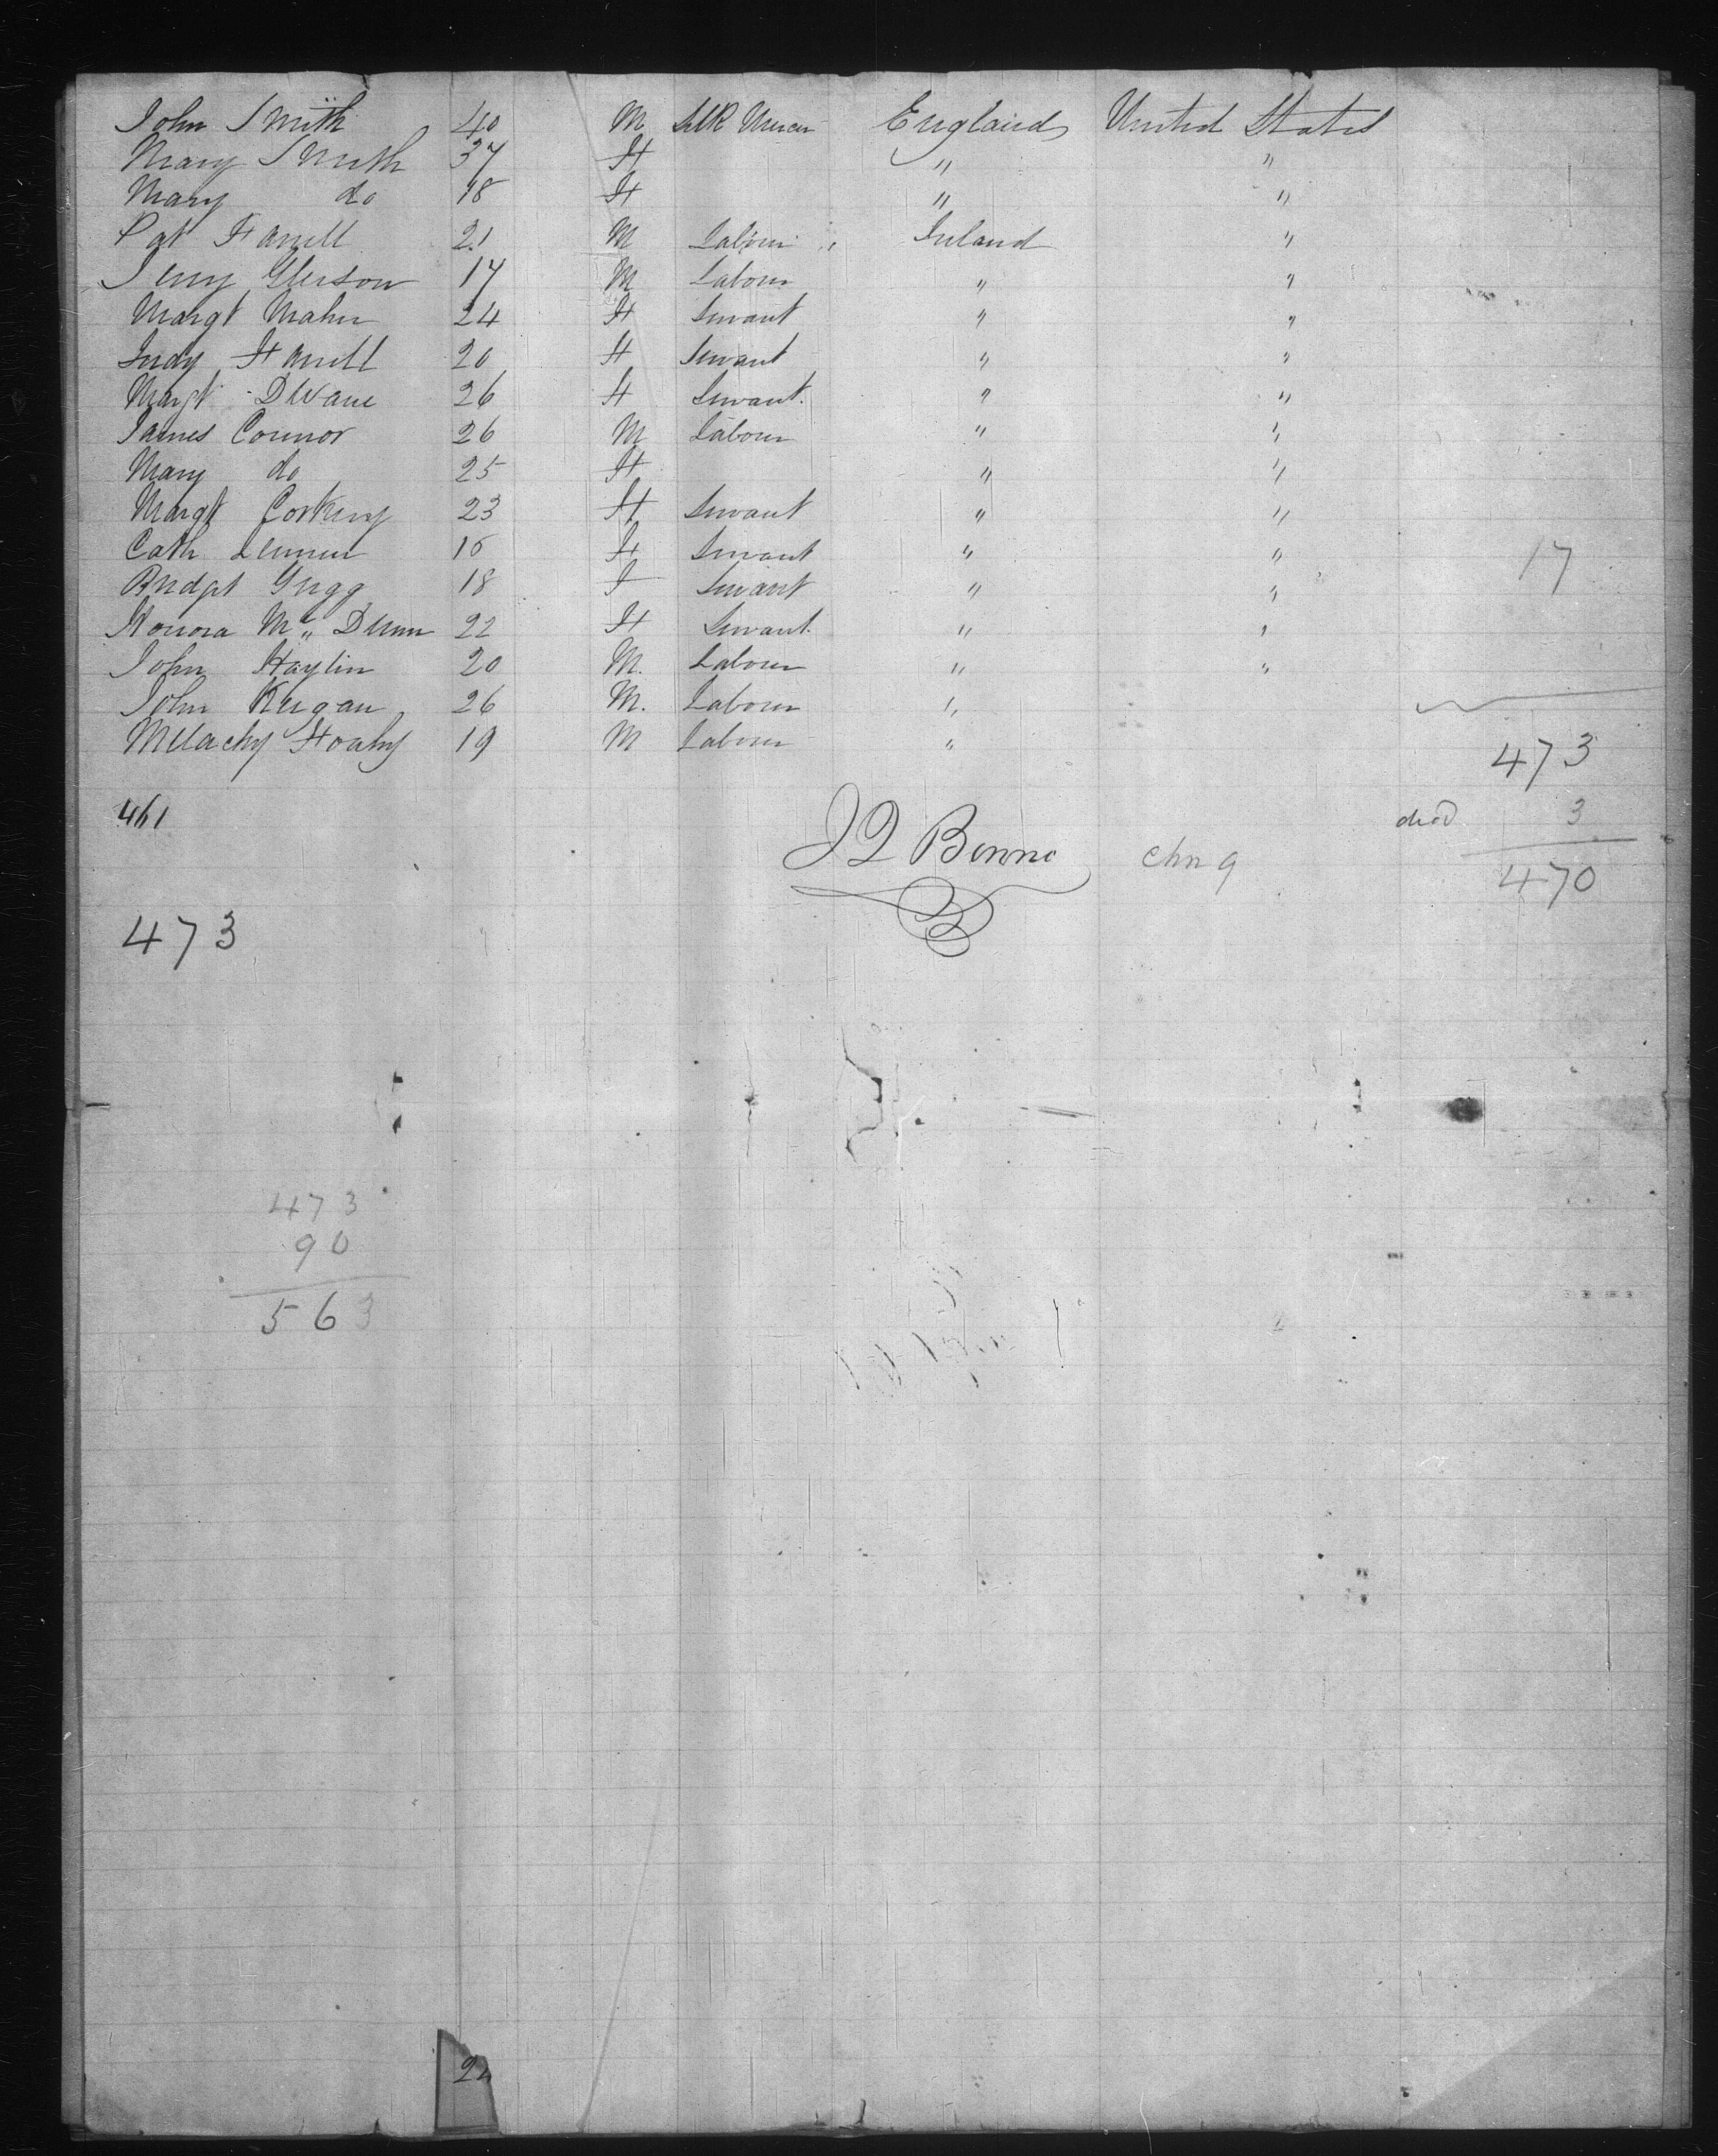 John Smith 40 M Silk Mercer England United States
Mary Smith 37 F " "
Mary do 18 F " "
Pat Farrell 21 M Labour Ireland "
Jerry Gleeson 17 M Labour " "
Margt Maher 24 F Servant " "
Judy Farrell 20 F Servant " "
Margt Divane 26 F Servant. " "
James Connor 26 M Labour " "
Mary do 25 F " "
Margt Corkery 23 F Servant " "
Cath 16 F Servant " "
Bridgt Grigg 18 F Servant " "
17
Honora Mc 22 F Servant. " "
John Haylin 20 M. Labour " "
John Keegan 26 M. Labour "
Melachy 19 M Labour "
473
461
died 3
J Q Bonne
470
473
473
90
563
24